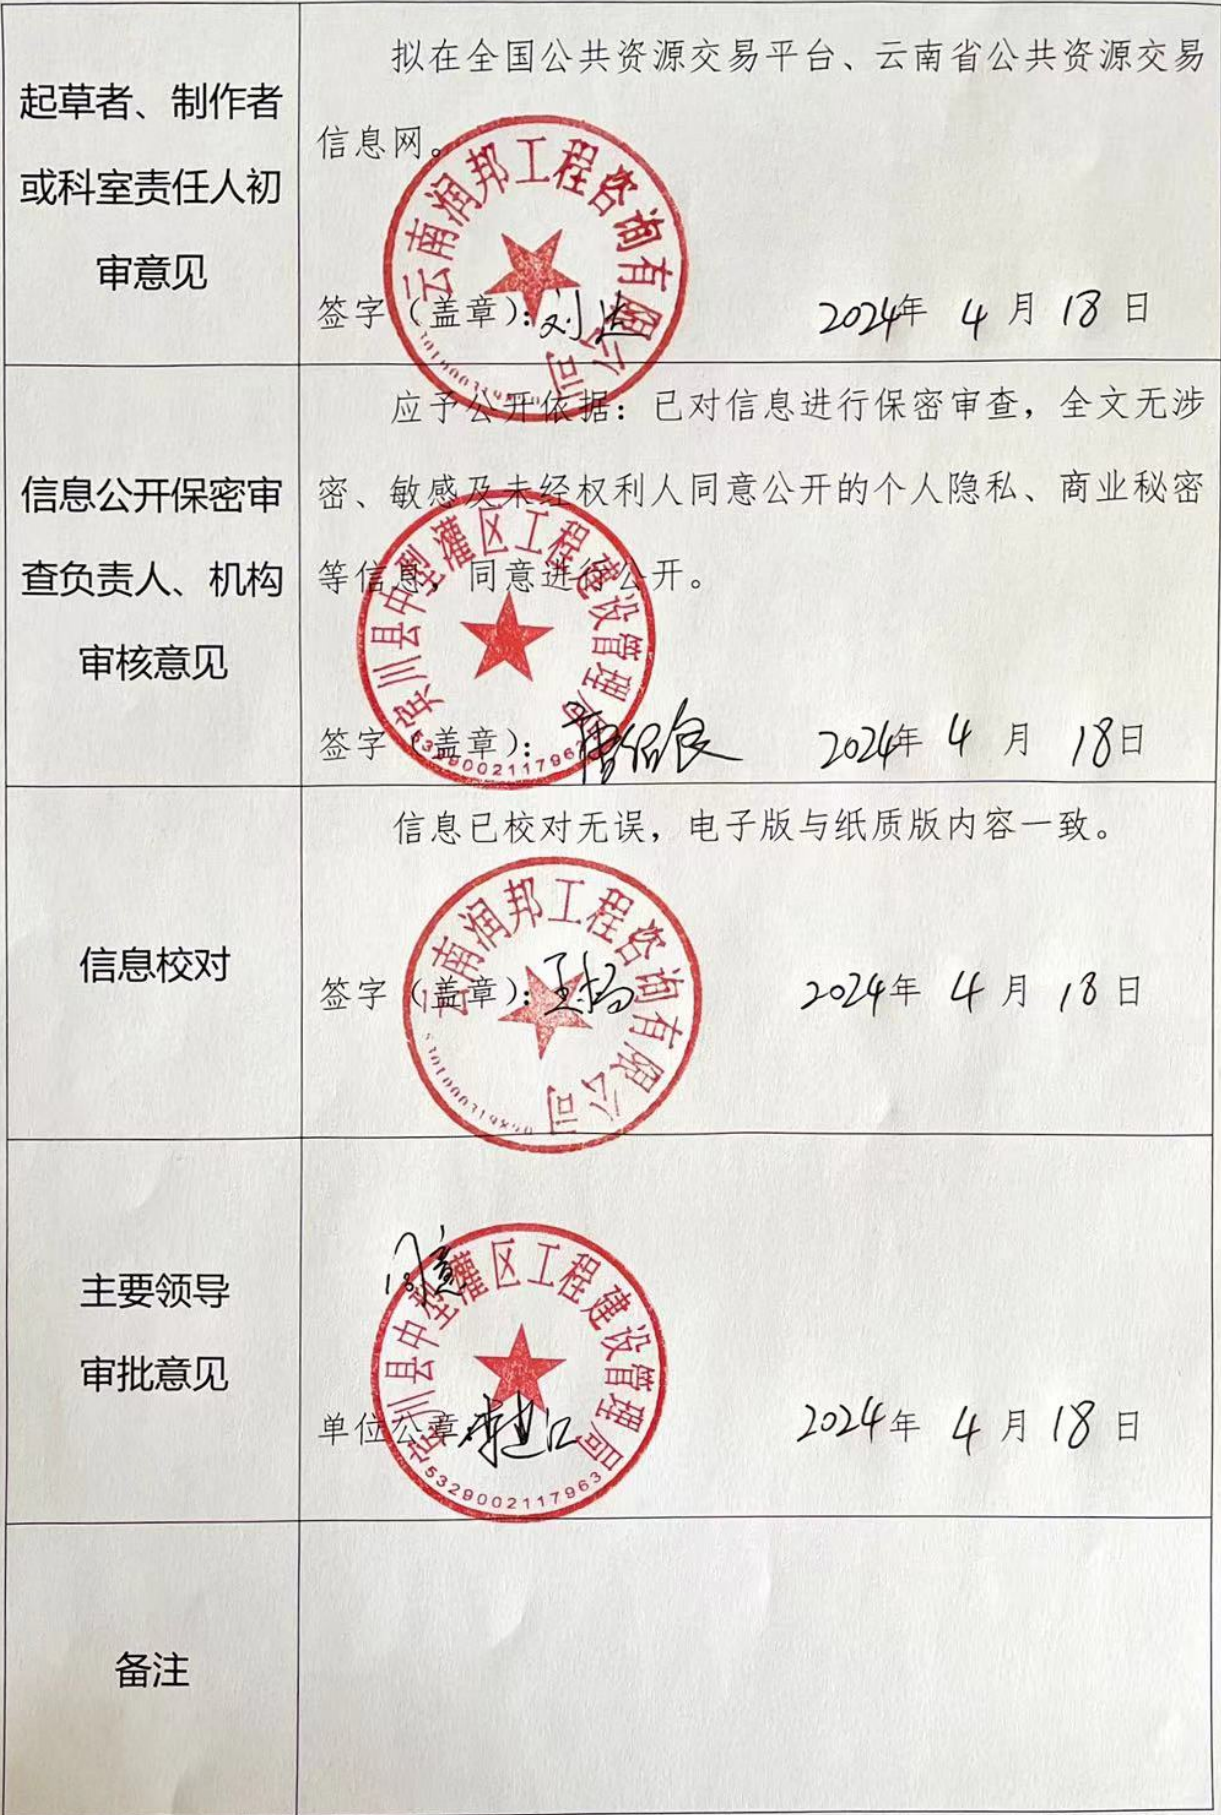 起草者、制作者
或科室责任人初
审意见
拟在全国公共资源交易平台、云南省公共资源交易
信息网。
云南润邦工程咨询有限公司
签字（盖章）：刘
2024年 4 月 18 日
信息公开保密审
查负责人、机构
审核意见
应予公开依据：已对信息进行保密审查，全文无涉
密、敏感及未经权利人同意公开的个人隐私、商业秘密
等信息，同意进行公开。
宾川县中型灌区工程建设管理局
签字（盖章）：
5329002117963
2024年 4 月 18日
信息校对
信息已校对无误，电子版与纸质版内容一致。
云南润邦工程咨询有限公司
签字（盖章）：王杨
2024年 4 月 18 日
主要领导
审批意见
同意
宾川县中型灌区工程建设管理局
单位公章：李建江
5329002117963
2024年 4 月 18 日
备注